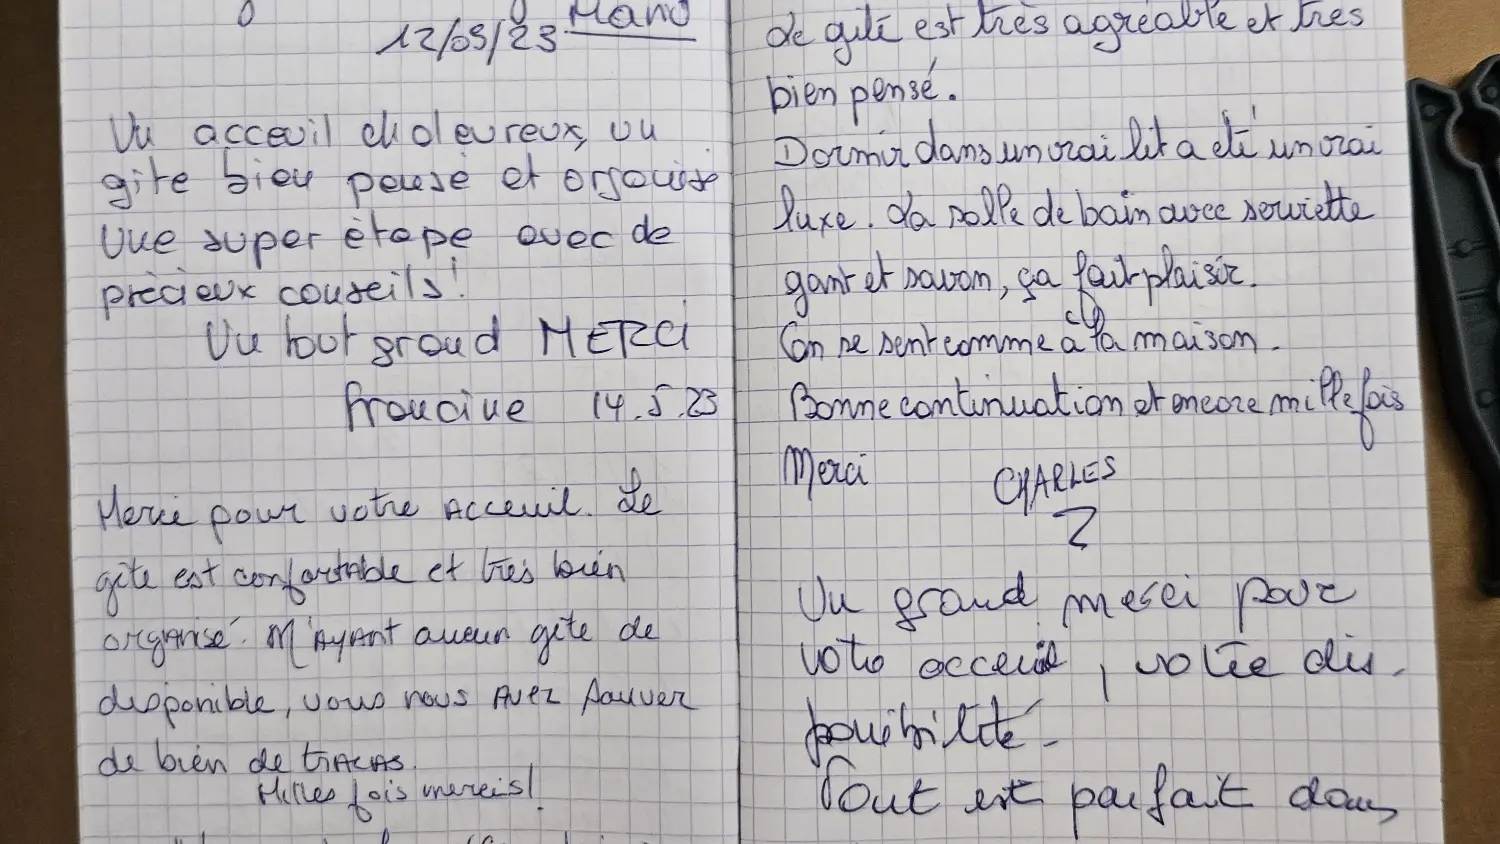 12/05/23 Mano
Un acceuil chaleureux, un
gite bien pensé et organisé
une super étape avec de
précieux conseils!
Un tout grand MERCI
Francine 14.5.23
Merci pour votre acceuil. Le
gîte est confortable et très bien
organisé. M'ayant aucun gîte de
disponible, vous nous avez sauver
de bien de tracas.
Milles fois mercis!
de gîte est très agréable et très
bien pensé.
Dormir dans un vrai lit a été un vrai
luxe. La salle de bain avec serviette
gant et savon, ça fait plaisir.
On se sent comme à la maison.
Bonne continuation et encore mille fois
Merci CHARLES
Un grand merci pour
votre acceuil, votre dis-
ponibilité -
Tout est parfait dans